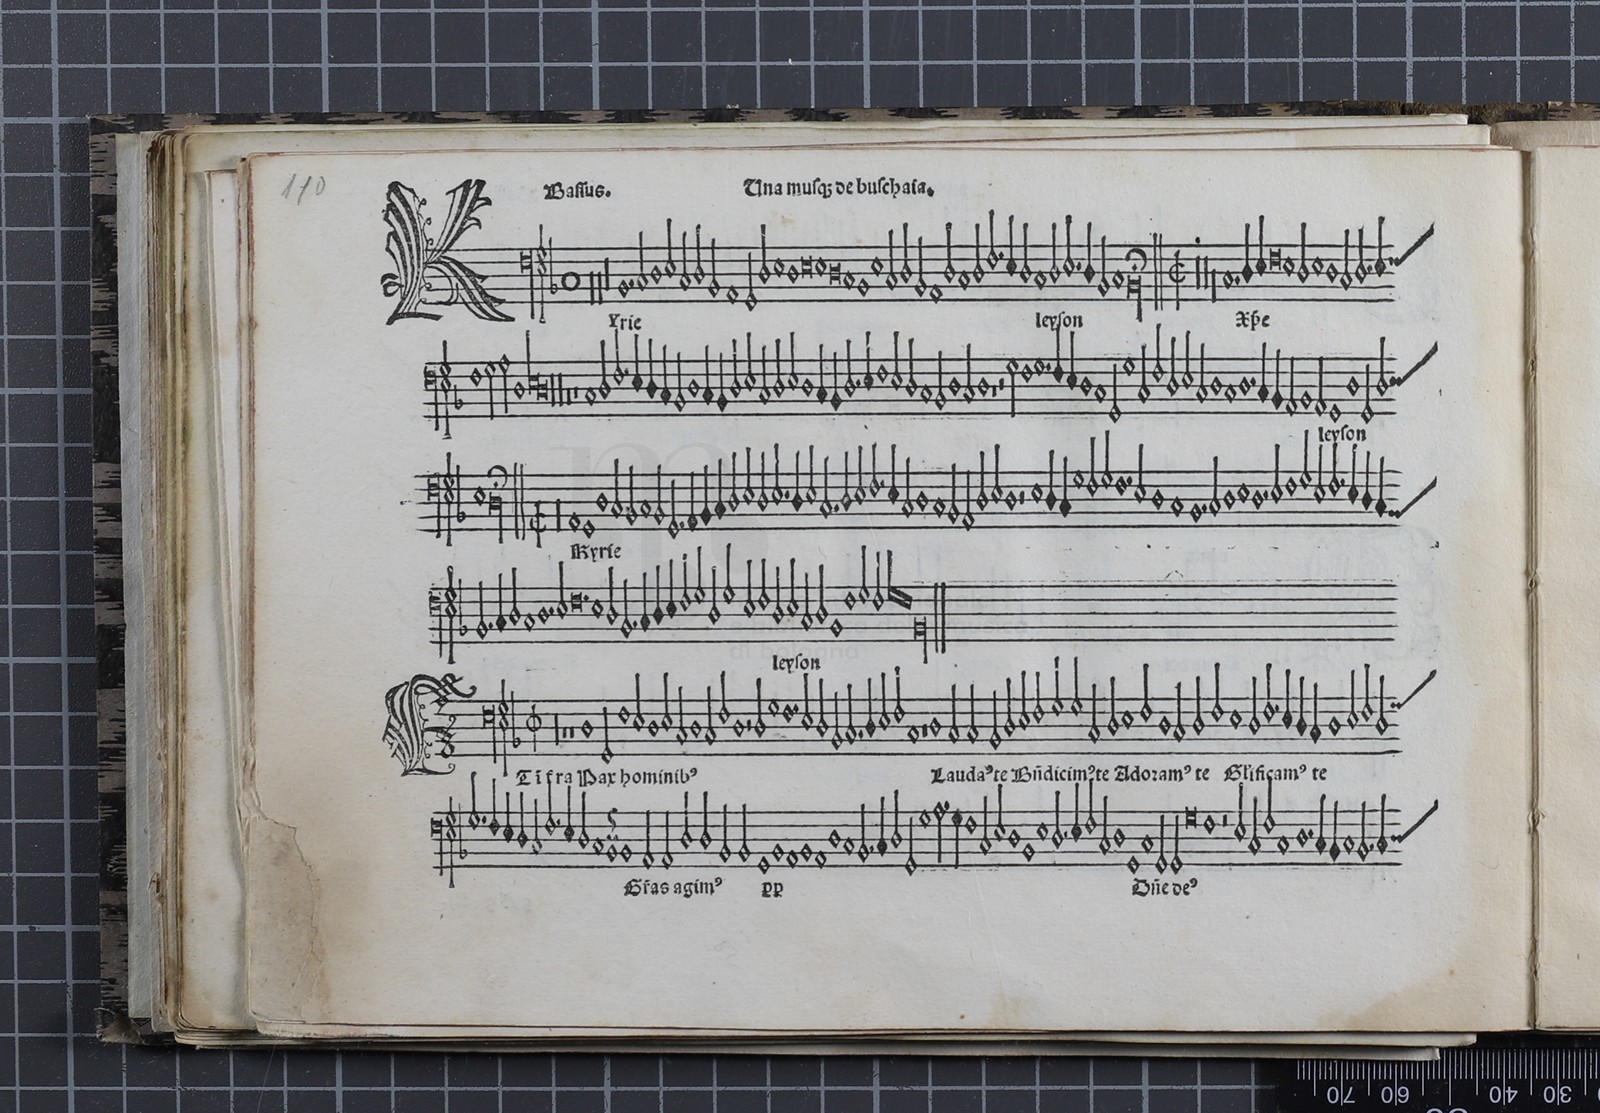 110
Bassus. Una musq̃ de buschaia.
K
Yrie leyson Xp̃e
leyson
Kyrie
leyson
E
Tĩ t̃ra Pax hominibꝰ Laudaꝰte Bñdicimꝰte Adoramꝰ te Gl̃ificamꝰ te
Gr̃as agimꝰ pp Dñe deꝰ
70 60 50 40 30